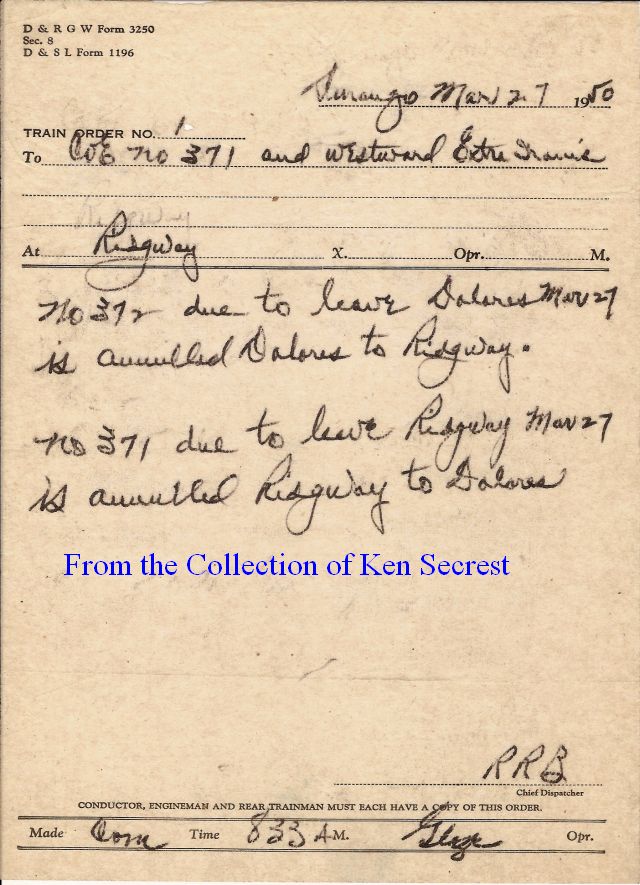 D & R G W Form 3250
Sec. 8
D & S L Form 1196
Durango Mar 27 1950
TRAIN ORDER NO. 1
To C&E No 371 and Westward Extra Trains
Ridgway
At Ridgway X. Opr. M.
No 372 due to leave Dolores Mar 27
is annulled Dolores to Ridgway.
No 371 due to leave Ridgway Mar 27
is annulled Ridgway to Dolores
From the Collection of Ken Secrest
R R B
Chief Dispatcher
CONDUCTOR, ENGINEMAN AND REAR TRAINMAN MUST EACH HAVE A COPY OF THIS ORDER.
Made Com Time 833 A M. Opr.